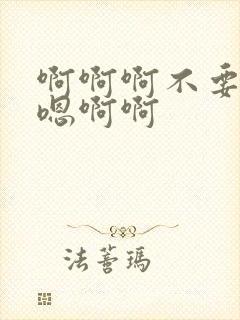 啊啊啊不要
嗯啊啊
法蒈瑪